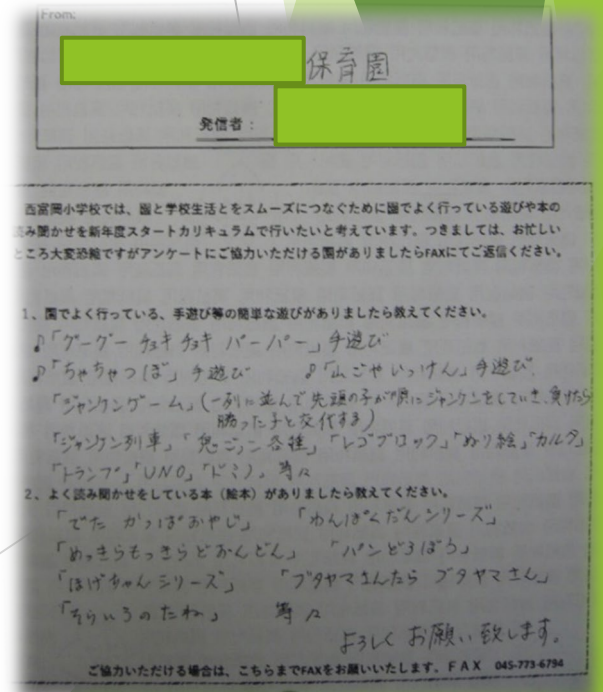 From:
保育園
発信者：
西富岡小学校では、園と学校生活とをスムーズにつなぐために園でよく行っている遊びや本の
読み聞かせを新年度スタートカリキュラムで行いたいと考えています。つきましては、お忙しい
ところ大変恐縮ですがアンケートにご協力いただける園がありましたらFAXにてご返信ください。
1、園でよく行っている、手遊び等の簡単な遊びがありましたら教えてください。
♪「グーグー チョキチョキ パーパー」手遊び
♪「ちゃちゃつぼ」手遊び ♪「山ごやいっけん」手遊び
「ジャンケンゲーム」(一列に並んで先頭の子が順にジャンケンをしていき、負けたら
勝った子と交代する)
「ジャンケン列車」「鬼ごっこ各種」「レゴブロック」「ぬり絵」「カルタ」
「トランプ」「UNO」「ドミノ」等々
2、よく読み聞かせをしている本（絵本）がありましたら教えてください。
「でた かっぱおやじ」 「わんぱくだんシリーズ」
「めっきらもっきらどおんどん」 「パンどろぼう」
「ほげちゃんシリーズ」 「ブタヤマさんたら ブタヤマさん」
「そらいろのたね」 等々
よろしくお願い致します。
ご協力いただける場合は、こちらまでFAXをお願いいたします。FAX 045-773-6794